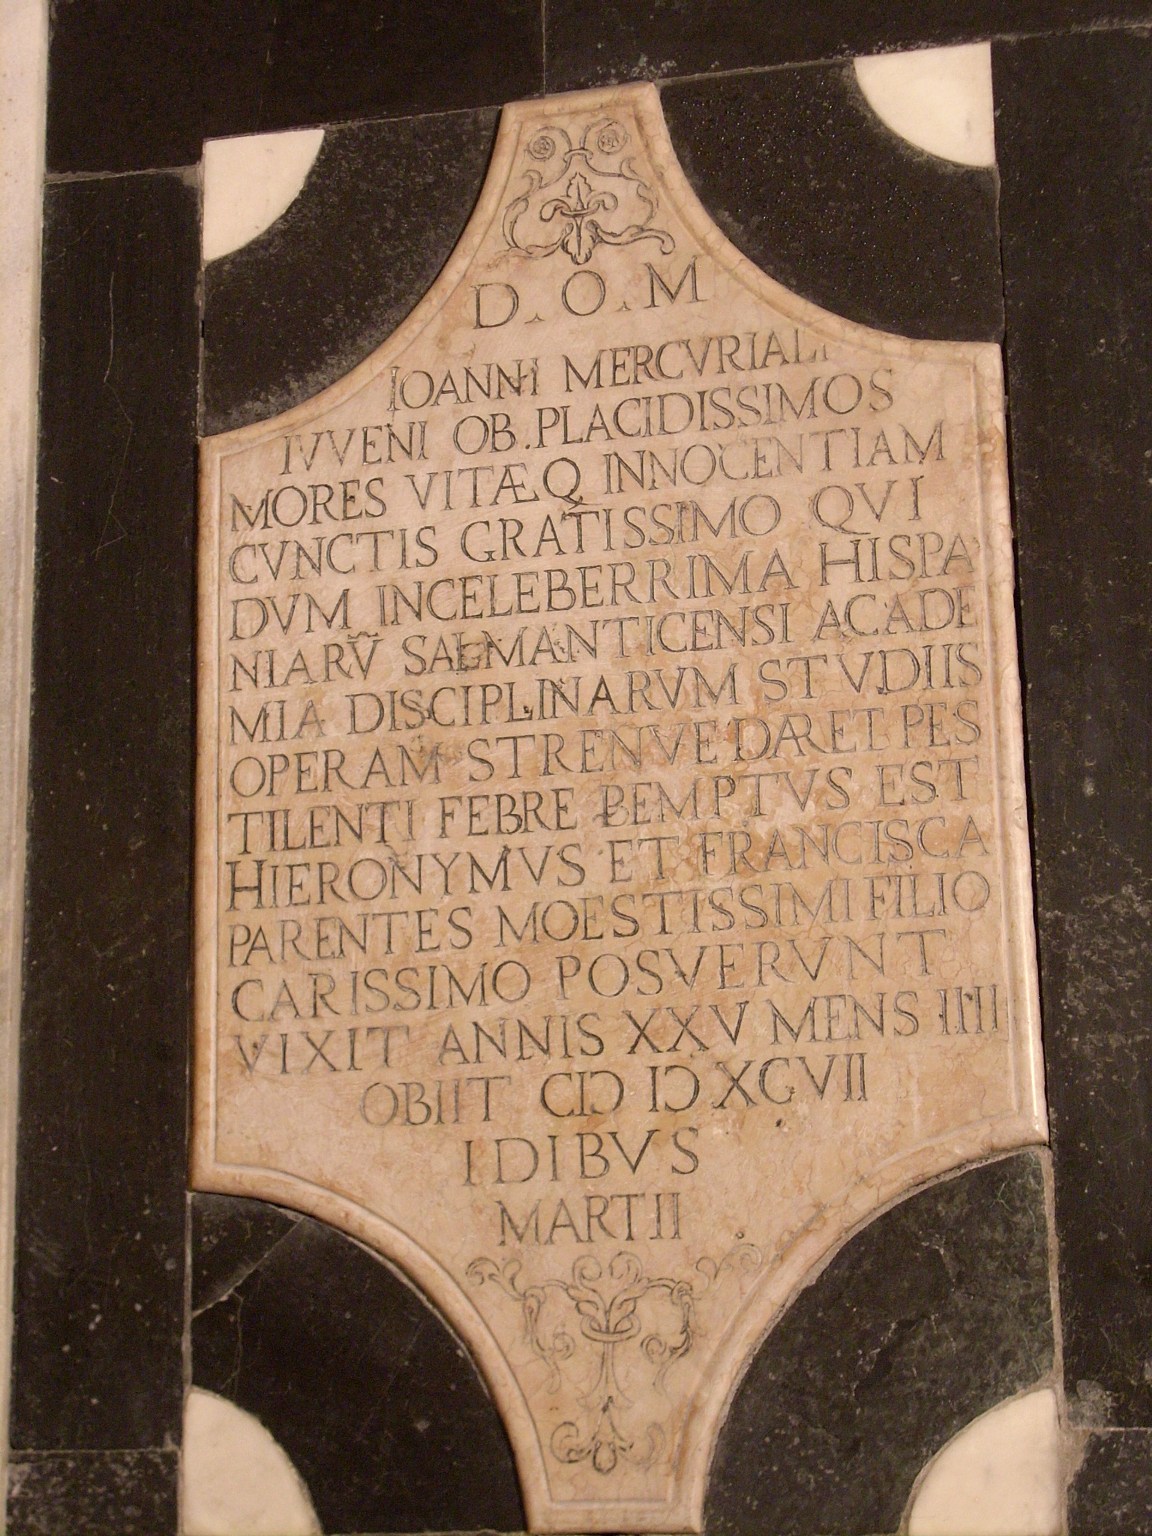 D.O.M
IOANNI MERCVRIALI
IVVENI OB.PLACIDISSIMOS
MORES VITÆQ INNOCENTIAM
CVNCTIS GRATISSIMO QVI
DVM INCELEBERRIMA HISPA
NIARV̄ SALMANTICENSI ACADE
MIA DISCIPLINARVM STVDIIS
OPERAM STRENVE DARET PES
TILENTI FEBRE PEMPTVS EST
HIERONYMVS ET FRANCISCA
PARENTES MOESTISSIMI FILIO
CARISSIMO POSVERVNT
VIXIT ANNIS XXV MENS IIII
OBIIT CIↃ IↃ XCVII
IDIBVS
MARTII